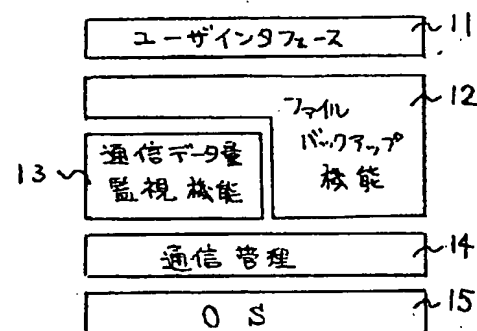 ユーザインタフェース
11
ファイル
バックアップ
機能
12
通信データ量
監視機能
13
通信管理
14
OS
15